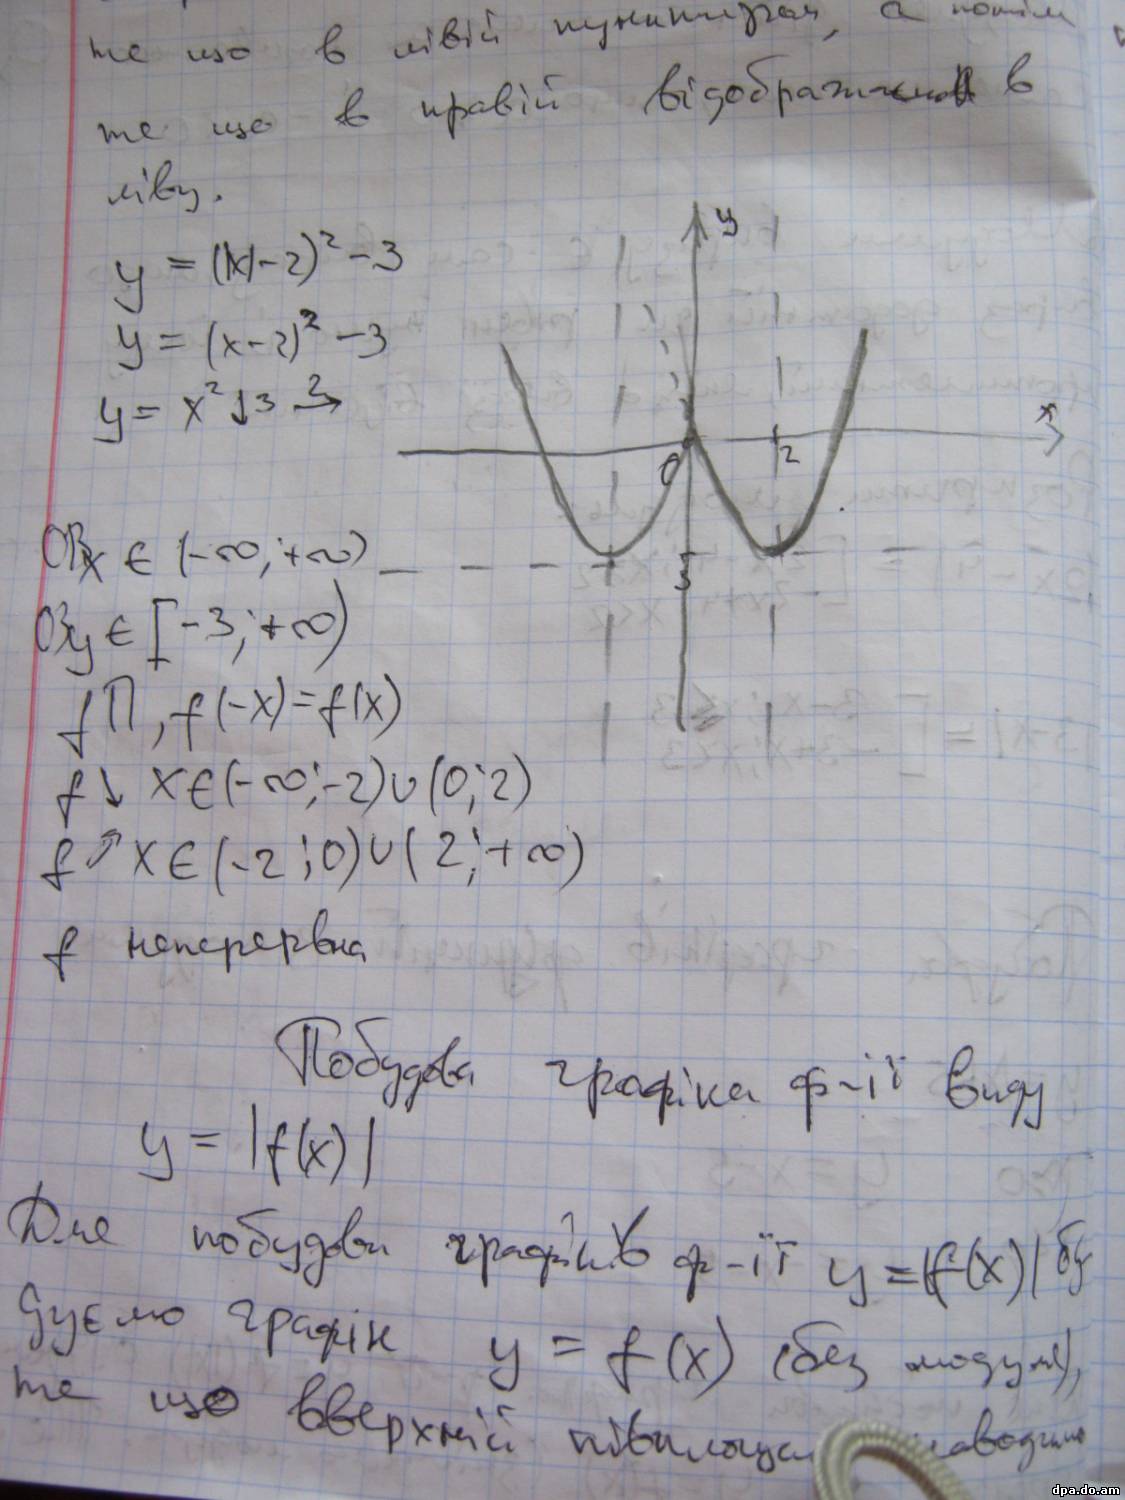 те що в лівій пунктирам, а потім
те що в правій відображаємо в
ліву.
y
y = (|x|-2)² -3
y = (x-2)² -3
y = x² ↓3 2→
x
0
2
3
ОВx ∈ (-∞; +∞)
ОЗy ∈ [-3; +∞)
f П, f(-x)=f(x)
f ↓ x∈(-∞;-2)∪(0;2)
f ↗ x∈(-2;0)∪(2;+∞)
f неперервна
Побудова графіка ф-ії виду
y = |f(x)|
Для побудови графіків ф-ії y = |f(x)| бу
дуємо графік y = f(x) (без модуля),
те що вверхній півплощи наводимо
dpa.do.am